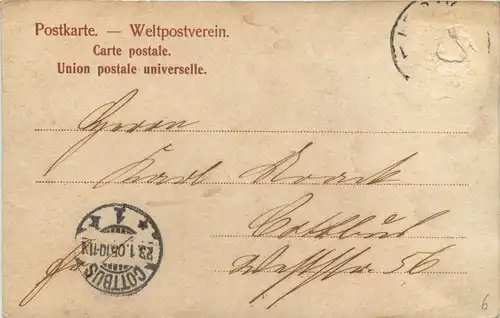 Postkarte. — Weltpostverein.
Carte postale.
Union postale universelle.
Herrn
Karl
Cottbus
Weststr. 56
COTTBUS
23.1.05.10-11V.
* 1 k *
6